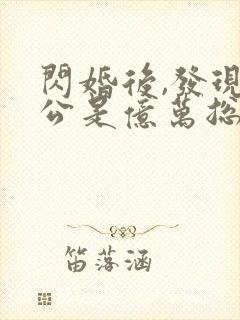 閃婚後,發現
公是億萬总
笛落涵